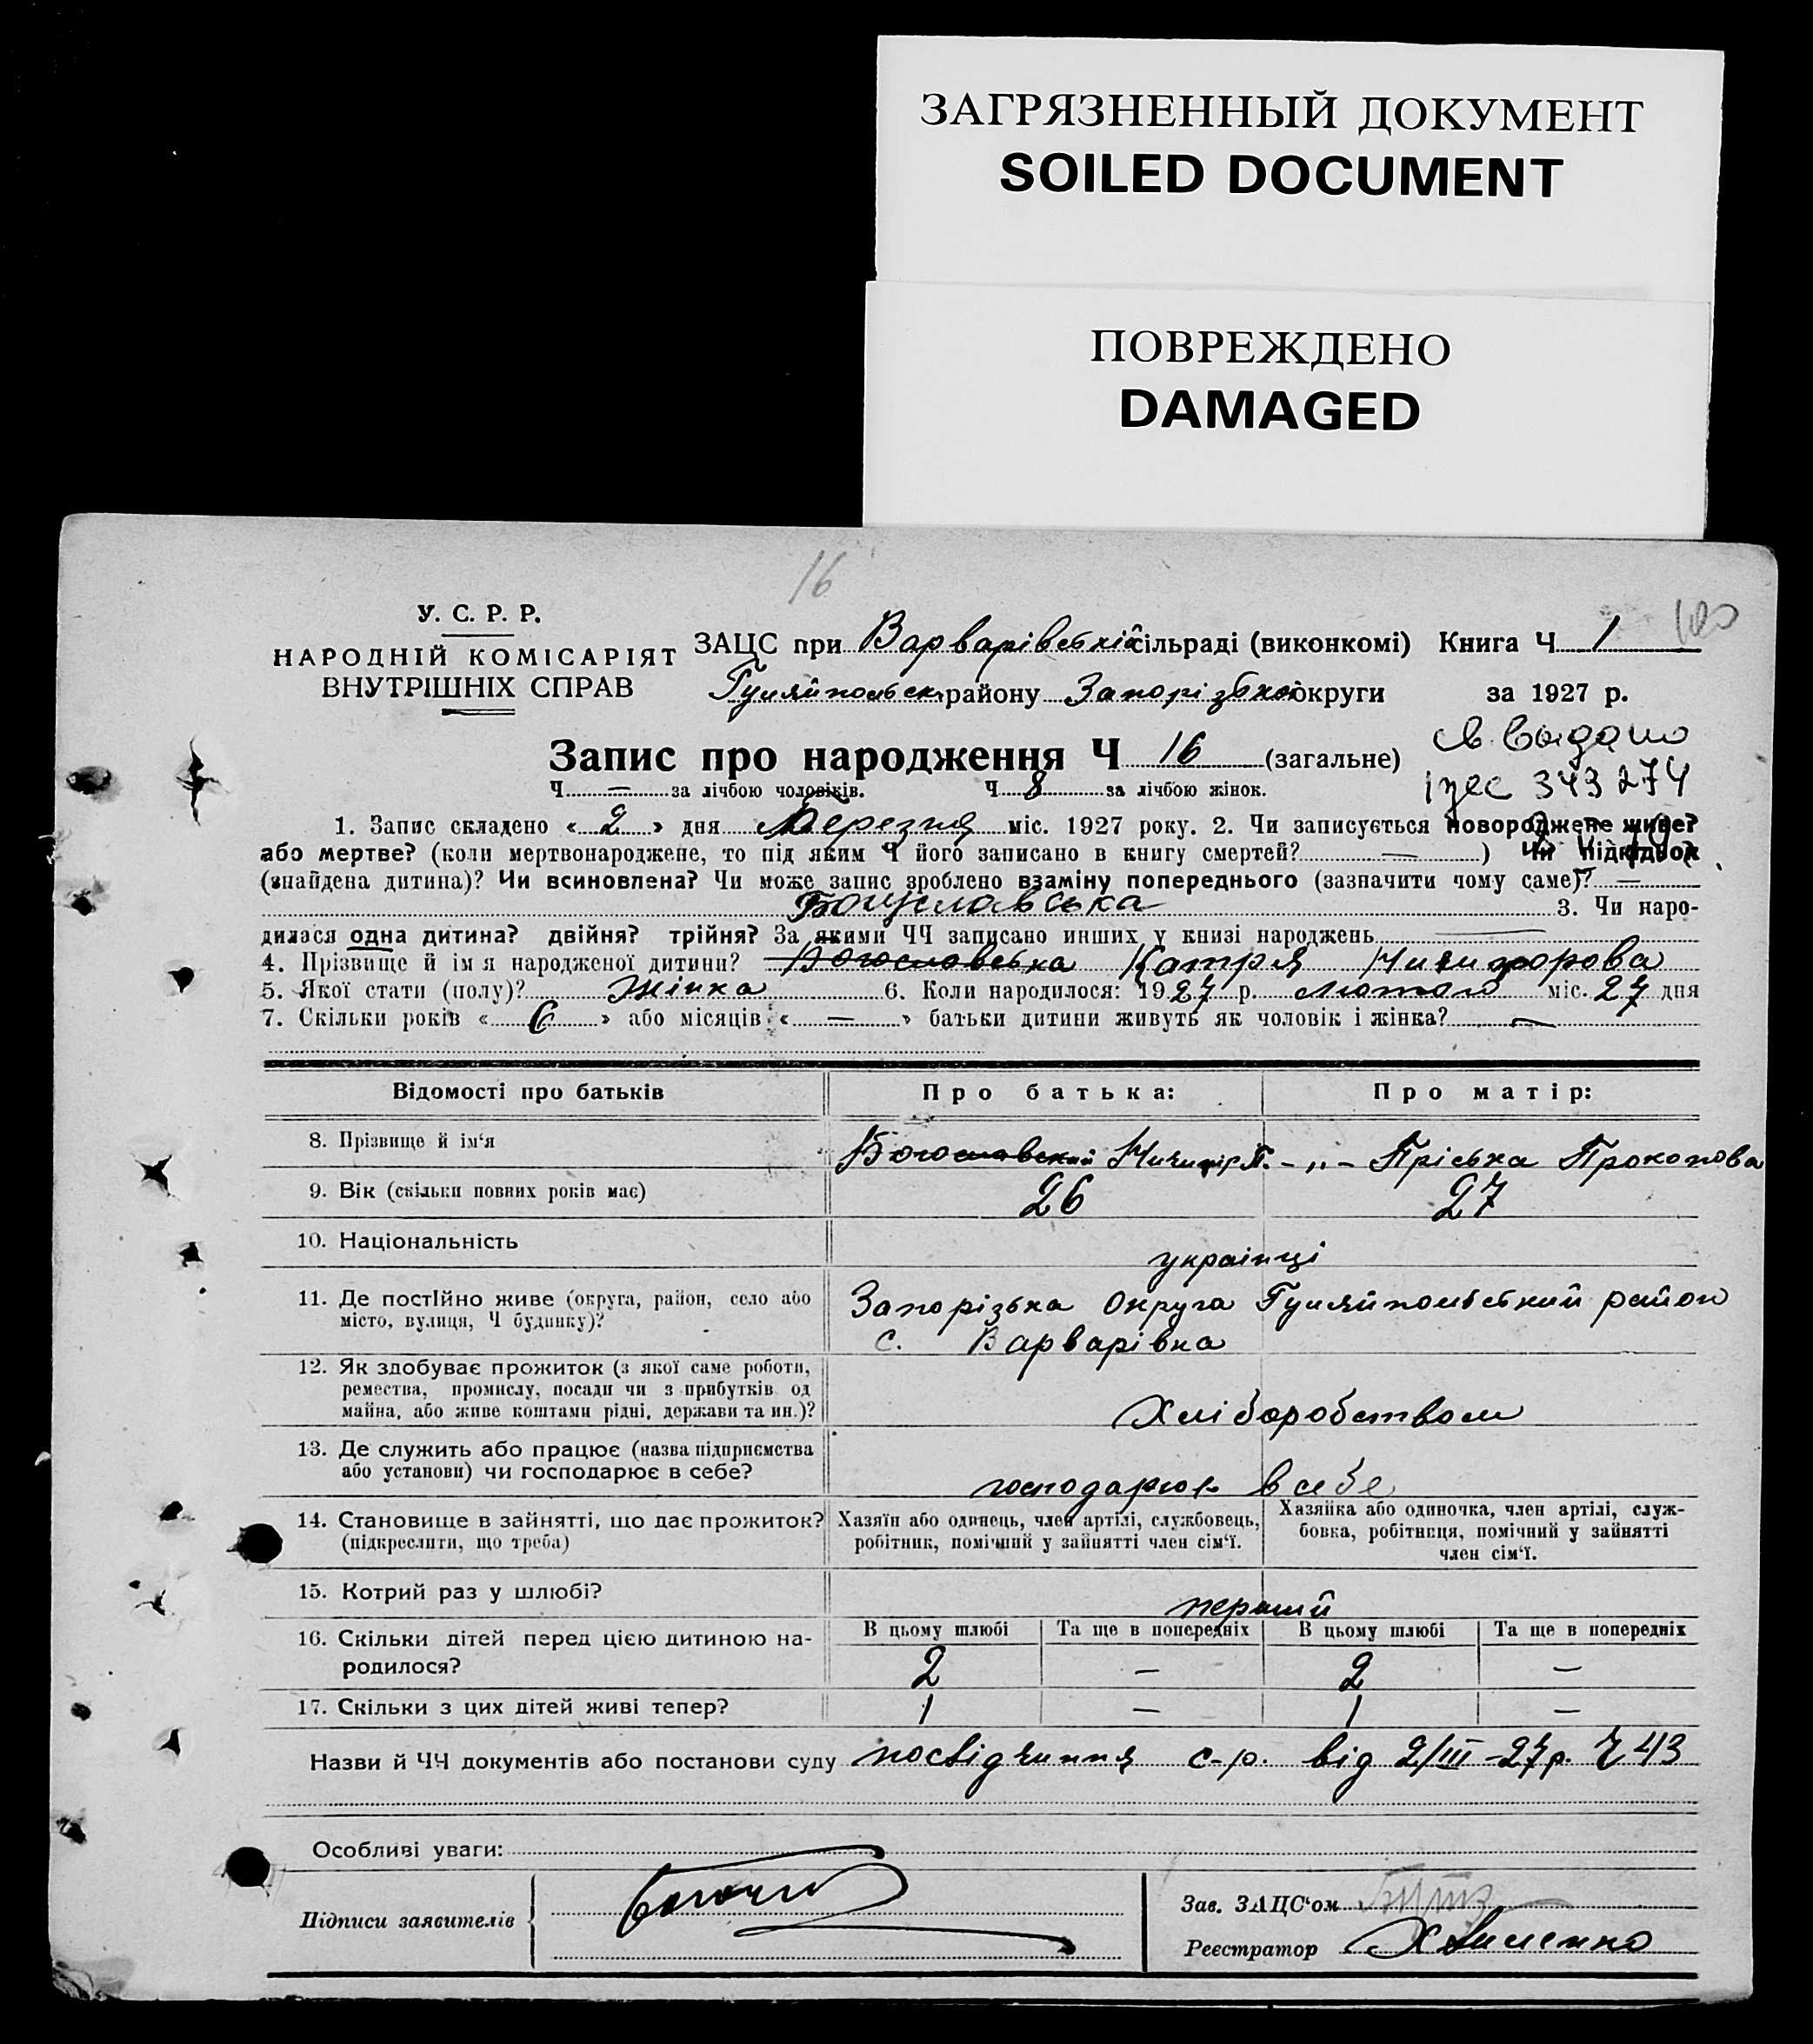 ЗАГРЯЗНЕННЫЙ ДОКУМЕНТ
SOILED DOCUMENT
ПОВРЕЖДЕНО
DAMAGED
16
100
У. С. Р. Р.
НАРОДНІЙ КОМІСАРІЯТ
ВНУТРІШНІХ СПРАВ
ЗАЦС при Варварівській сільраді (виконкомі) Книга Ч 1
Гуляйпольск. району Запорізької округи за 1927 р.
Запис про народження Ч 16 (загальне)
св. выдано
343274
Ч — за лічбою чоловіків. Ч 8 за лічбою жінок.
1. Запис складено « 2 » дня Березня міс. 1927 року. 2. Чи записується новороджене живе?
або мертве? (коли мертвонароджене, то під яким Ч його записано в книгу смертей? — ) Чи підкідьок
(знайдена дитина)? Чи всиновлена? Чи може запис зроблено взаміну попереднього (зазначити чому саме)? —
Богуславська 3. Чи наро-
дилася одна дитина? двійня? трійня? За якими ЧЧ записано инших у книзі народжень —
4. Прізвище й ім'я народженої дитини? Богословська Катря Ничипорова
5. Якої стати (полу)? Жінка 6. Коли народилося: 1927 р. лютого міс. 27 дня
7. Скільки років « 6 » або місяців « — » батьки дитини живуть як чоловік і жінка? —
Відомості про батьків Про батька: Про матір:
8. Прізвище й ім'я Богословский Ничипір П. -„- Пріська Прокопова
9. Вік (скільки повних років має) 26 27
10. Національність українці
11. Де постійно живе (округа, район, село або Запорізька Округа Гуляйпольський район
місто, вулиця, Ч будинку)? с. Варварівка
12. Як здобуває прожиток (з якої саме роботи,
ремества, промислу, посади чи з прибутків од
майна, або живе коштами рідні, держави та ин.)? Хліборобством
13. Де служить або працює (назва підприємства
або установи) чи господарює в себе? господарює в себе
14. Становище в зайнятті, що дає прожиток? Хазяїн або одинець, член артілі, службовець, Хазяйка або одиночка, член артілі, служ-
(підкреслити, що треба) робітник, помічний у зайнятті член сім'ї. бовка, робітниця, помічний у зайнятті
член сім'ї.
15. Котрий раз у шлюбі? перший
16. Скільки дітей перед цією дитиною на- В цьому шлюбі Та ще в попередніх В цьому шлюбі Та ще в попередніх
родилося? 2 — 2 —
17. Скільки з цих дітей живі тепер? 1 — 1 —
Назви й ЧЧ документів або постанови суду посвідчиння с-р. від 2/III-27р. Ч 43
Особливі уваги:
Підписи заявителів
Зав. ЗАЦС'ом
Реєстратор